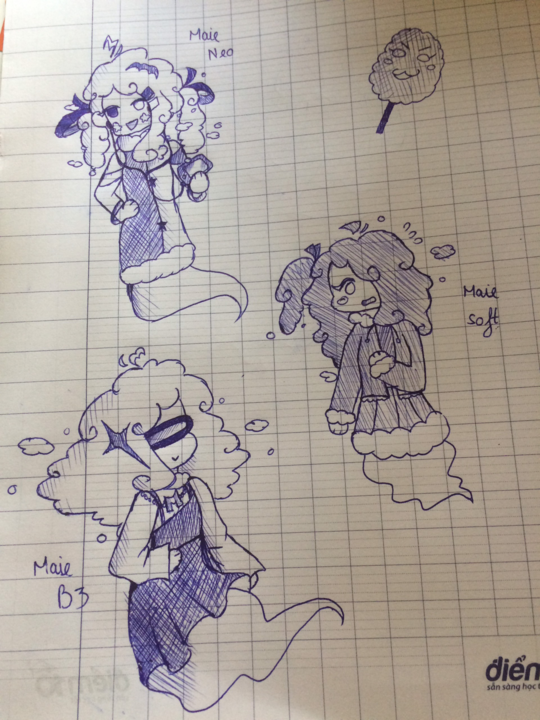 Maie
Neo
Maie
soft
Maie
B3
điểm
sẵn sàng học t